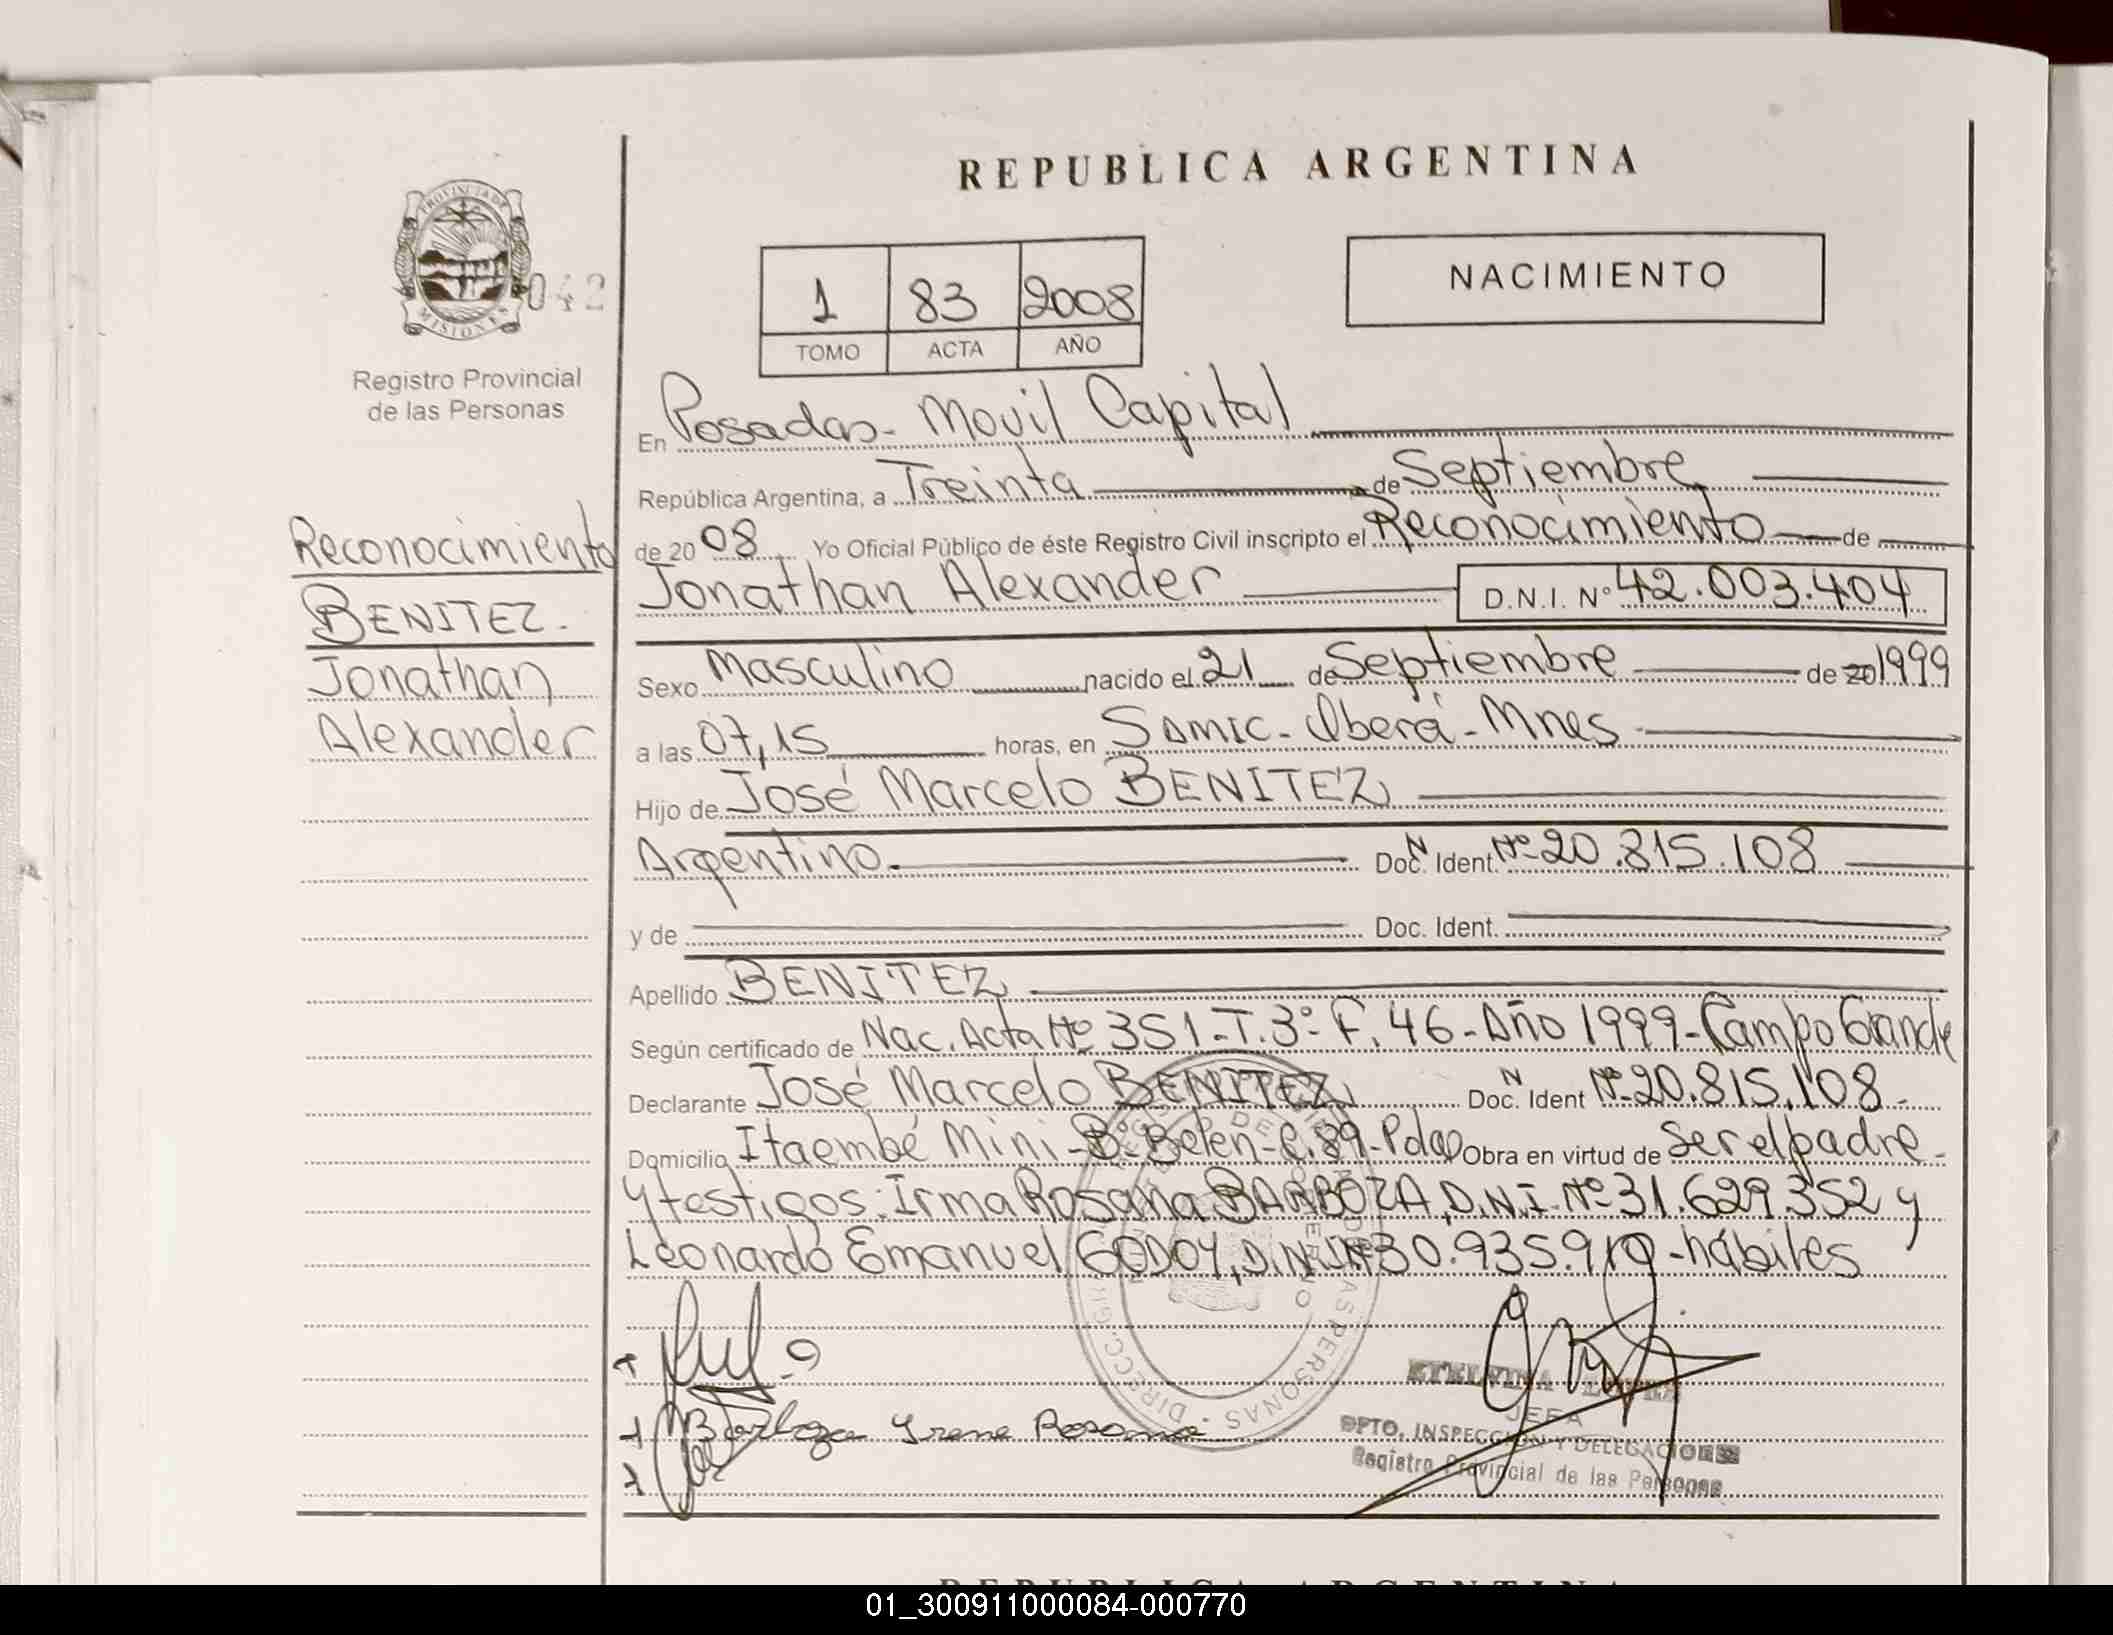 REPUBLICA ARGENTINA
PROVINCIA DE
MISIONES
042
Registro Provincial
de las Personas
1 83 2008
TOMO ACTA AÑO
NACIMIENTO
En Posadas - Movil Capital
República Argentina, a Treinta de Septiembre
de 2008 Yo Oficial Público de éste Registro Civil inscripto el Reconocimiento de
Jonathan Alexander D.N.I. Nº 42.003.404
Reconocimiento
BENITEZ.
Jonathan
Alexander
Sexo Masculino nacido el 21 de Septiembre de 20 1999
a las 07,15 horas, en SAMIC - Oberá - Mnes
Hijo de José Marcelo BENITEZ
Argentino. Doc. N Ident. Nº 20.815.108
y de Doc. Ident.
Apellido BENITEZ
Según certificado de Nac. Acta Nº 351 - T. 3º - F. 46 - Año 1999 - Campo Grande
Declarante José Marcelo BENITEZ Doc. N Ident Nº 20.815.108 -
Domicilio Itaembé Mini - Bº Belen - C. 89 - Pdas Obra en virtud de ser el padre -
y testigos: Irma Rosana BARBOZA, D.N.I. Nº 31.629.352 y
Leonardo Emanuel GODOY, D.N.I. Nº 30.935.919 - hábiles
Barboza Irene Rosana
ETELVINA
JEFA
DPTO. INSPECCION Y DELEGACIONES
Registro Provincial de las Personas
REPUBLICA ARGENTINA
01_300911000084-000770